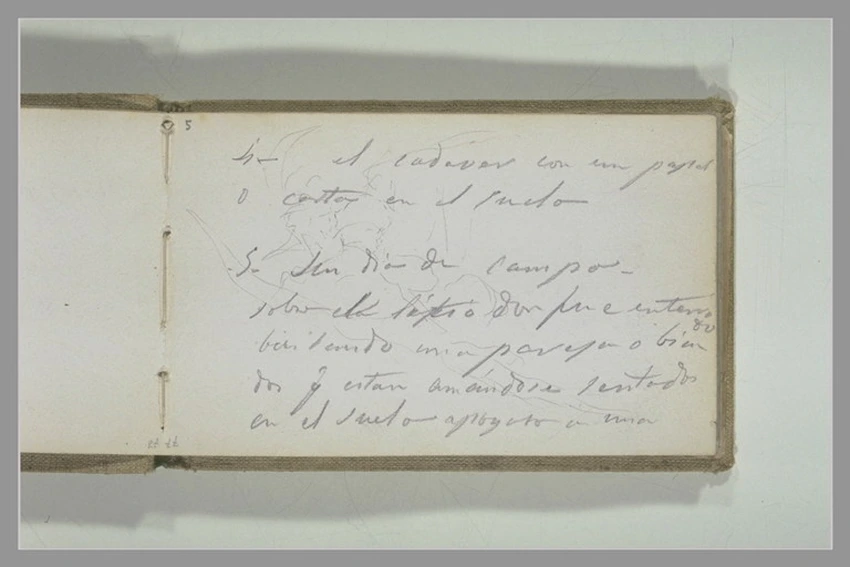 5
4- el cadaver con un papel
o carta en el suelo
5- Un dia de campo -
sobre el donde fue enterra
do
bailando una pareja o bien
dos q estan amándose sentados
en el suelo apoyado a una